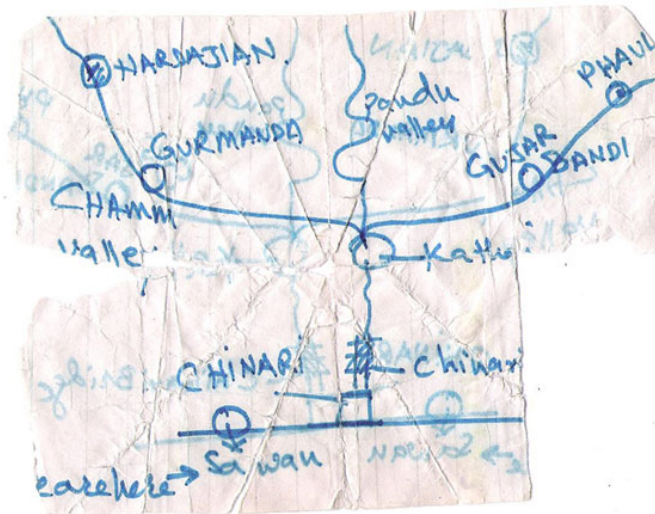 HARDAJIAN.
PHAUL
Pandu
valley
GURMANDA
GUJAR
BANDI
CHAMM
valley
CHINARI
Chinari
Sawan
earehere →